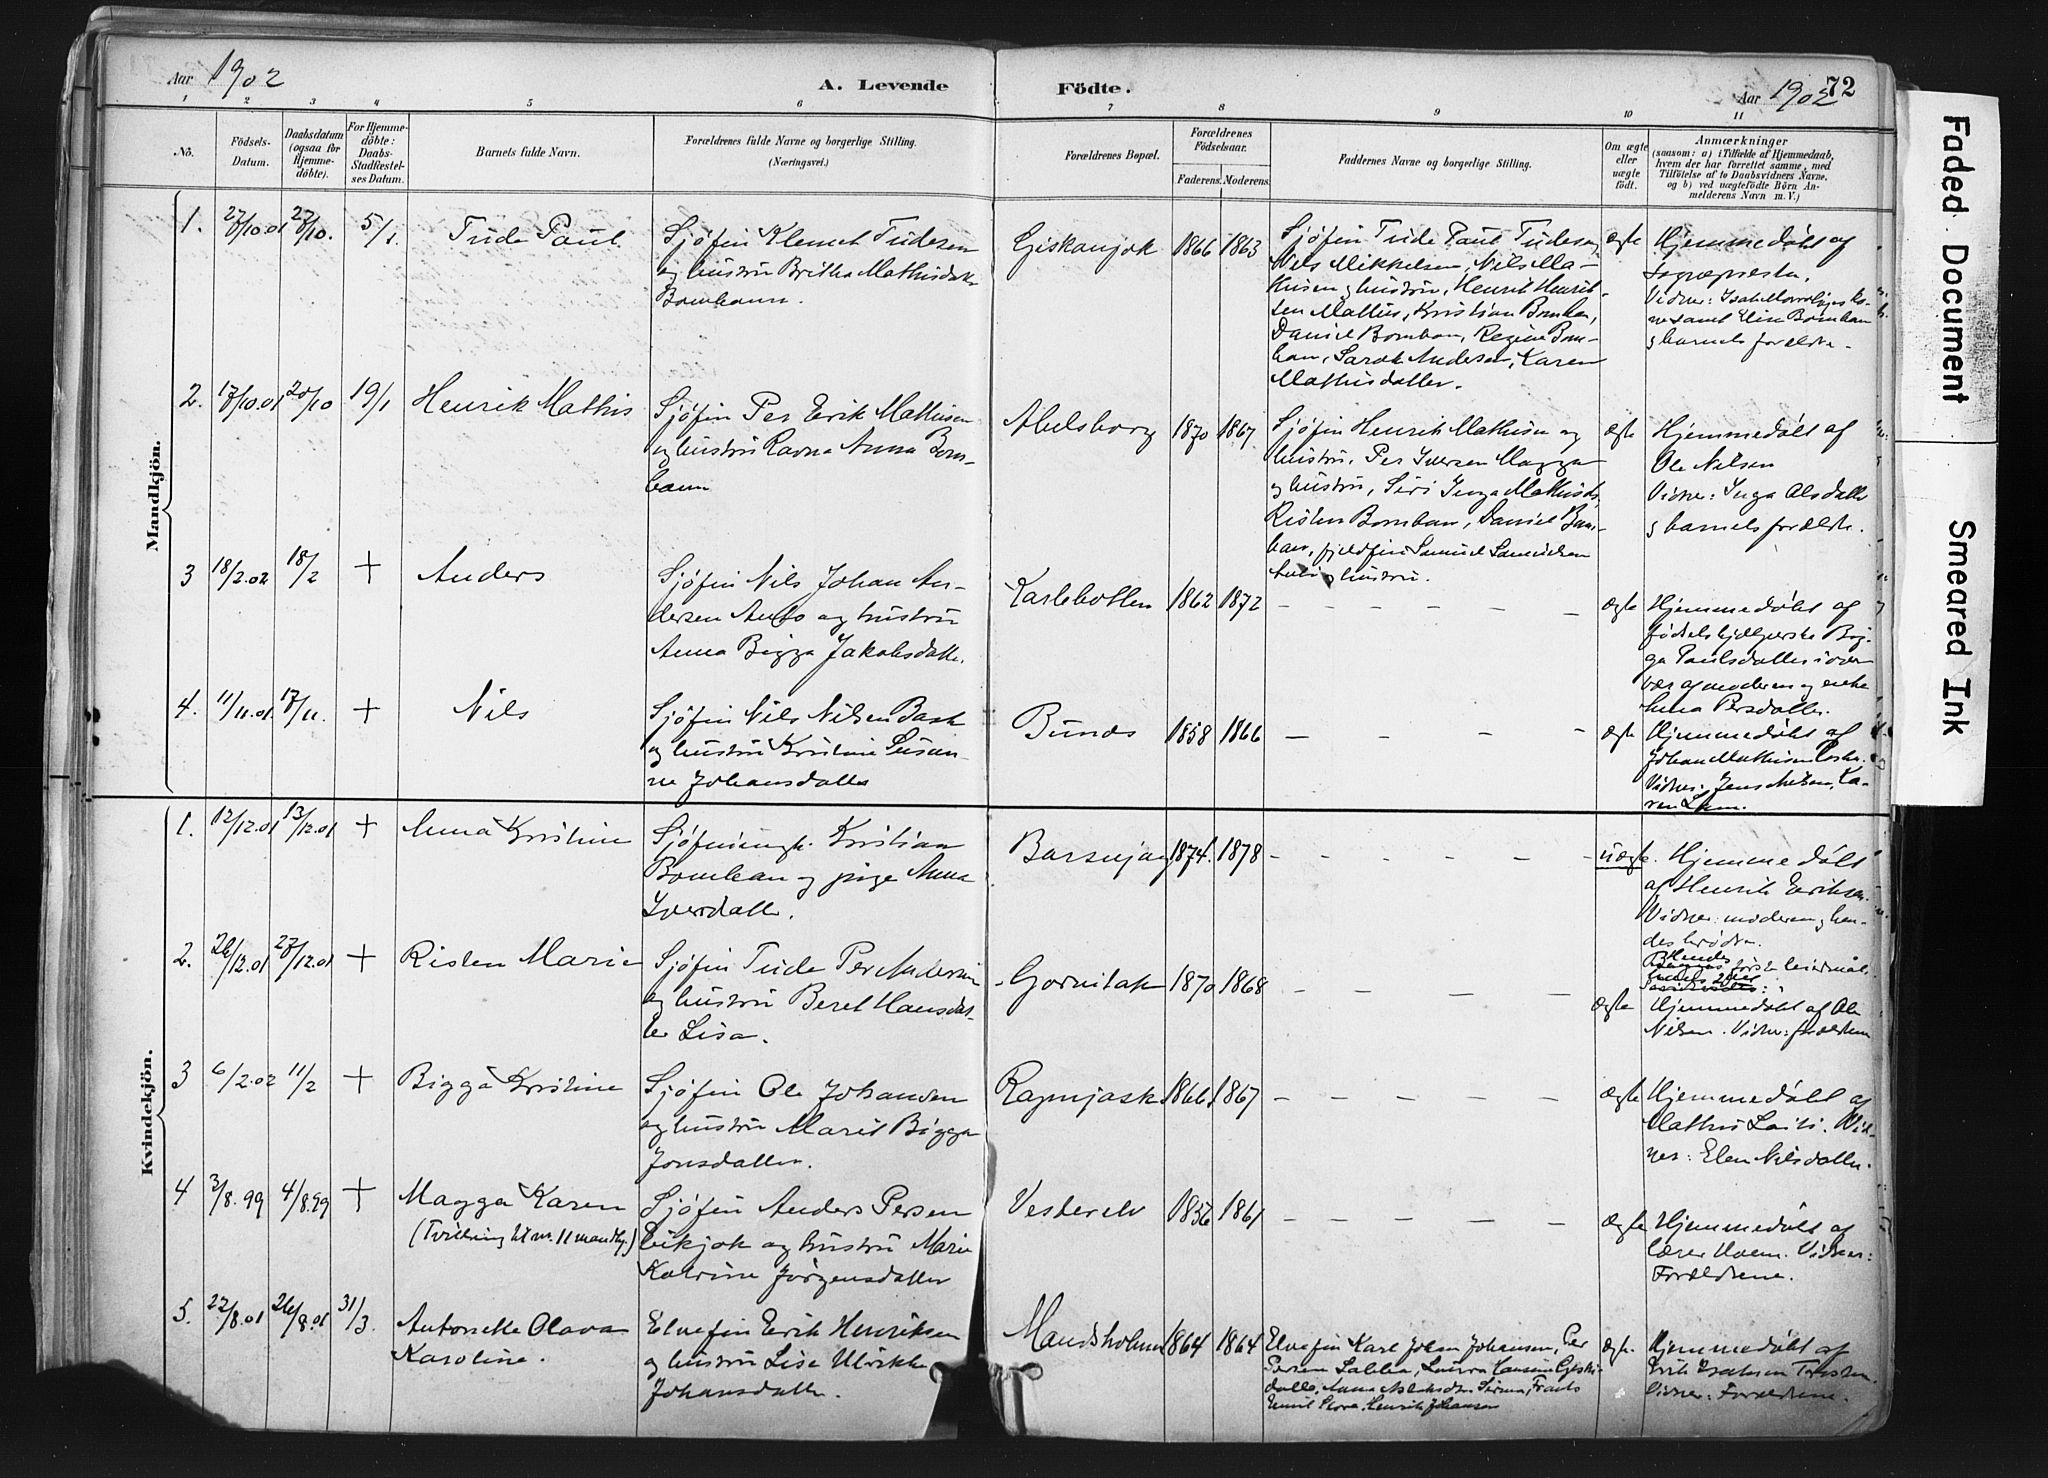 Aar 1902
A. Levende Födte.
Aar 1902 72
1 2 3 4 5 6 7 8 9 10 11
No.
Födsels-Datum.
Daabsdatum (ogsaa for Hjemme-döbte).
For Hjemme-döbte: Daabs-Stadfæstel-ses Datum.
Barnets fulde Navn.
Forældrenes fulde Navne og borgerlige Stilling. (Næringsvei.)
Forældrenes Bopæl.
Forældrenes Födselsaar.
Faderens. Moderens.
Faddernes Navne og borgerlige Stilling.
Om ægte eller uægte födt.
Anmærkninger
(saasom: a) i Tilfælde af Hjemmedaab,
hvem der har forrettet samme, med
Tilföielse af to Daabsvidners Navne,
og b) ved uægtefödte Börn An-
melderens Navn m. V.)
Mandkjön.
1. 27/10.01 27/10. 5/1. Tude Paul
Sjöfin Klemet Tudesen
og hustru Britha Mathisdatter
Bomban.
Giskanjok 1866 1863
Sjöfin Tude Paul Tudesen,
Nils Mikkelsen, Nils Ma-
thisen og hustru, Henrik Henrik-
sen Mathis, Kristian Bomban,
Daniel Bomban, Regine Bom-
ban, Sarah Andersen, Karen
Mathisdatter.
ægte
Hjemmedøbt af
sognepresten.
Vidner:
samt Elise Bomban
og barnets forældre.
2. 17/10.01 20/10 19/1 Henrik Mathis
Sjöfin Per Erik Mathisen
og hustru Ravna Anna Bom-
ban
Abelsborg 1870 1867
Sjöfin Henrik Mathisen og
hustru, Per Iversen Magga
og hustru, Siri Inga Mathisd.,
Risten Bomban, Daniel Bom-
ban, fjeldfin Samuel Samuelsen
og hustru.
ægte
Hjemmedøbt af
Ole Nilsen
Vidner: Inga Olsdatter
og barnets forældre.
3 18/2.02 18/2 + Anders
Sjöfin Nils Johan An-
dersen og hustru
Anna Bigga Jakobsdatter.
Karlebotten 1862 1872 – – – – –
ægte
Hjemmedøbt af
födselshjælperske Big-
ga Paulsdatter i over-
vær af moderen og enke
Persdatter.
4. 11/11.01 17/11. + Nils
Sjöfin Nils Nilsen Bask
og hustru Kristine Susan-
ne Johansdatter
Bunes 1858 1866 – – – –
ægte
Hjemmedøbt af
Johan Mathisen
Vidner: Jens Nilsen, Ka-
ren
Kvindekjön.
1. 12/12.01 13/12.01 + Anna Kristine
Sjöfinungk. Kristian
Bomban og pige Anna
Iversdatter.
Barsnjarg 1874. 1878 – – – – – –
uægte.
Hjemmedøbt
af Henrik Eriksen.
Vidner: moderen og hen-
des brødre.
Hendes
første leiermål.
2. 26/12.01 27/12.01 + Risten Marie
Sjöfin Tude Per Andersen
og hustru Beret Hansdat-
ter Lisa.
Gornitak 1870 1868 – – – – –
ægte
Hjemmedøbt af Ole
Nilsen. Vidner: forældrene
3 6/2.02 11/2 + Bigga Kristine
Sjöfin Ole Johansen
og hustru Marit Bigga
Jonsdatter.
Ragnjask 1866 1867 – – – – – –
ægte
Hjemmedøbt af
Mathis Laiti. Vid-
ner: Elen Nilsdatter.
4 3/8.99 4/8.99 + Magga Karen
(Tvilling til nr. 11 mandkj.)
Sjöfin Anders Persen
og hustru Marie
Katrine Jörgensdatter
Vesterelv 1856 1861 – – – – –
ægte
Hjemmedøbt af
lærer Hoem. Vidner:
Forældrene.
5. 22/8.01 26/8.01 31/3. Antonette Olava
Karoline.
Elvefin Erik Henriksen
og hustru Lisa Ulrikke
Johansdatter.
Mandsholmen 1864 1864
Elvefin Karl Johan Johansen, Per
Persen Labba, Laura Hansine
datter, Anna Sirma, Frants
Emil Store, Henrik Johansen
ægte.
Hjemmedøbt af
Erik Isaksen
Vidner: Forældrene.
Faded Document
Smeared Ink